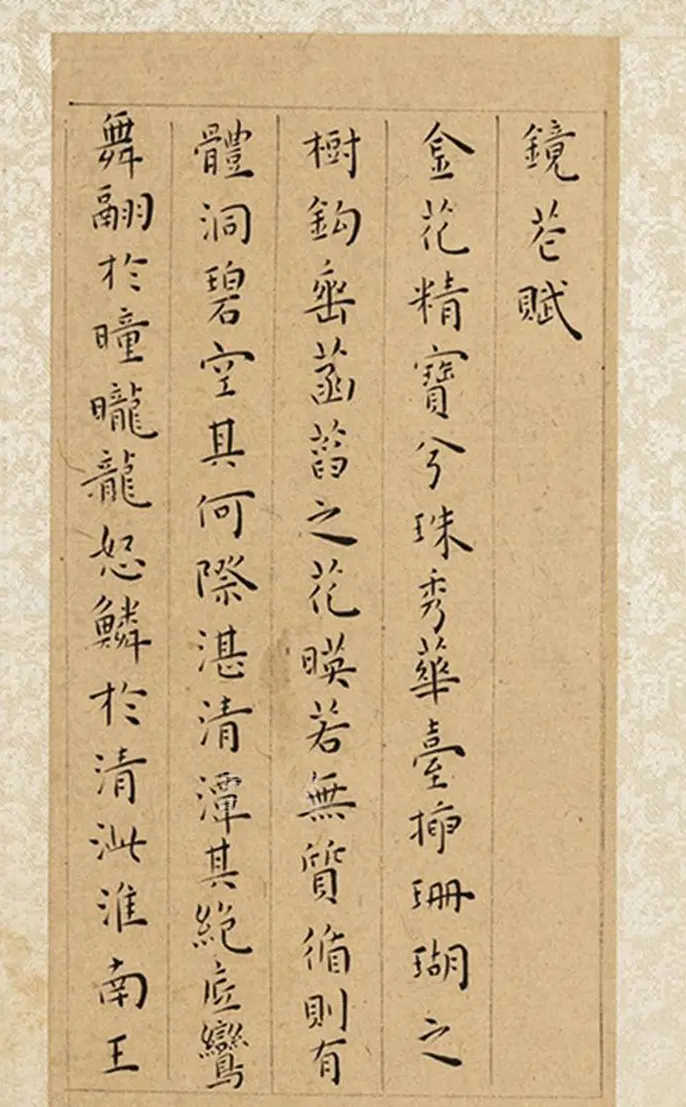 鏡芲賦
金花精寶兮珠秀華臺珊瑚之
樹鈎密菡萏之花暎若無質循則有
體洞碧空其何際湛清潭其絕底鸞
舞翮於曈曨龍恕鱗於清泚淮南王